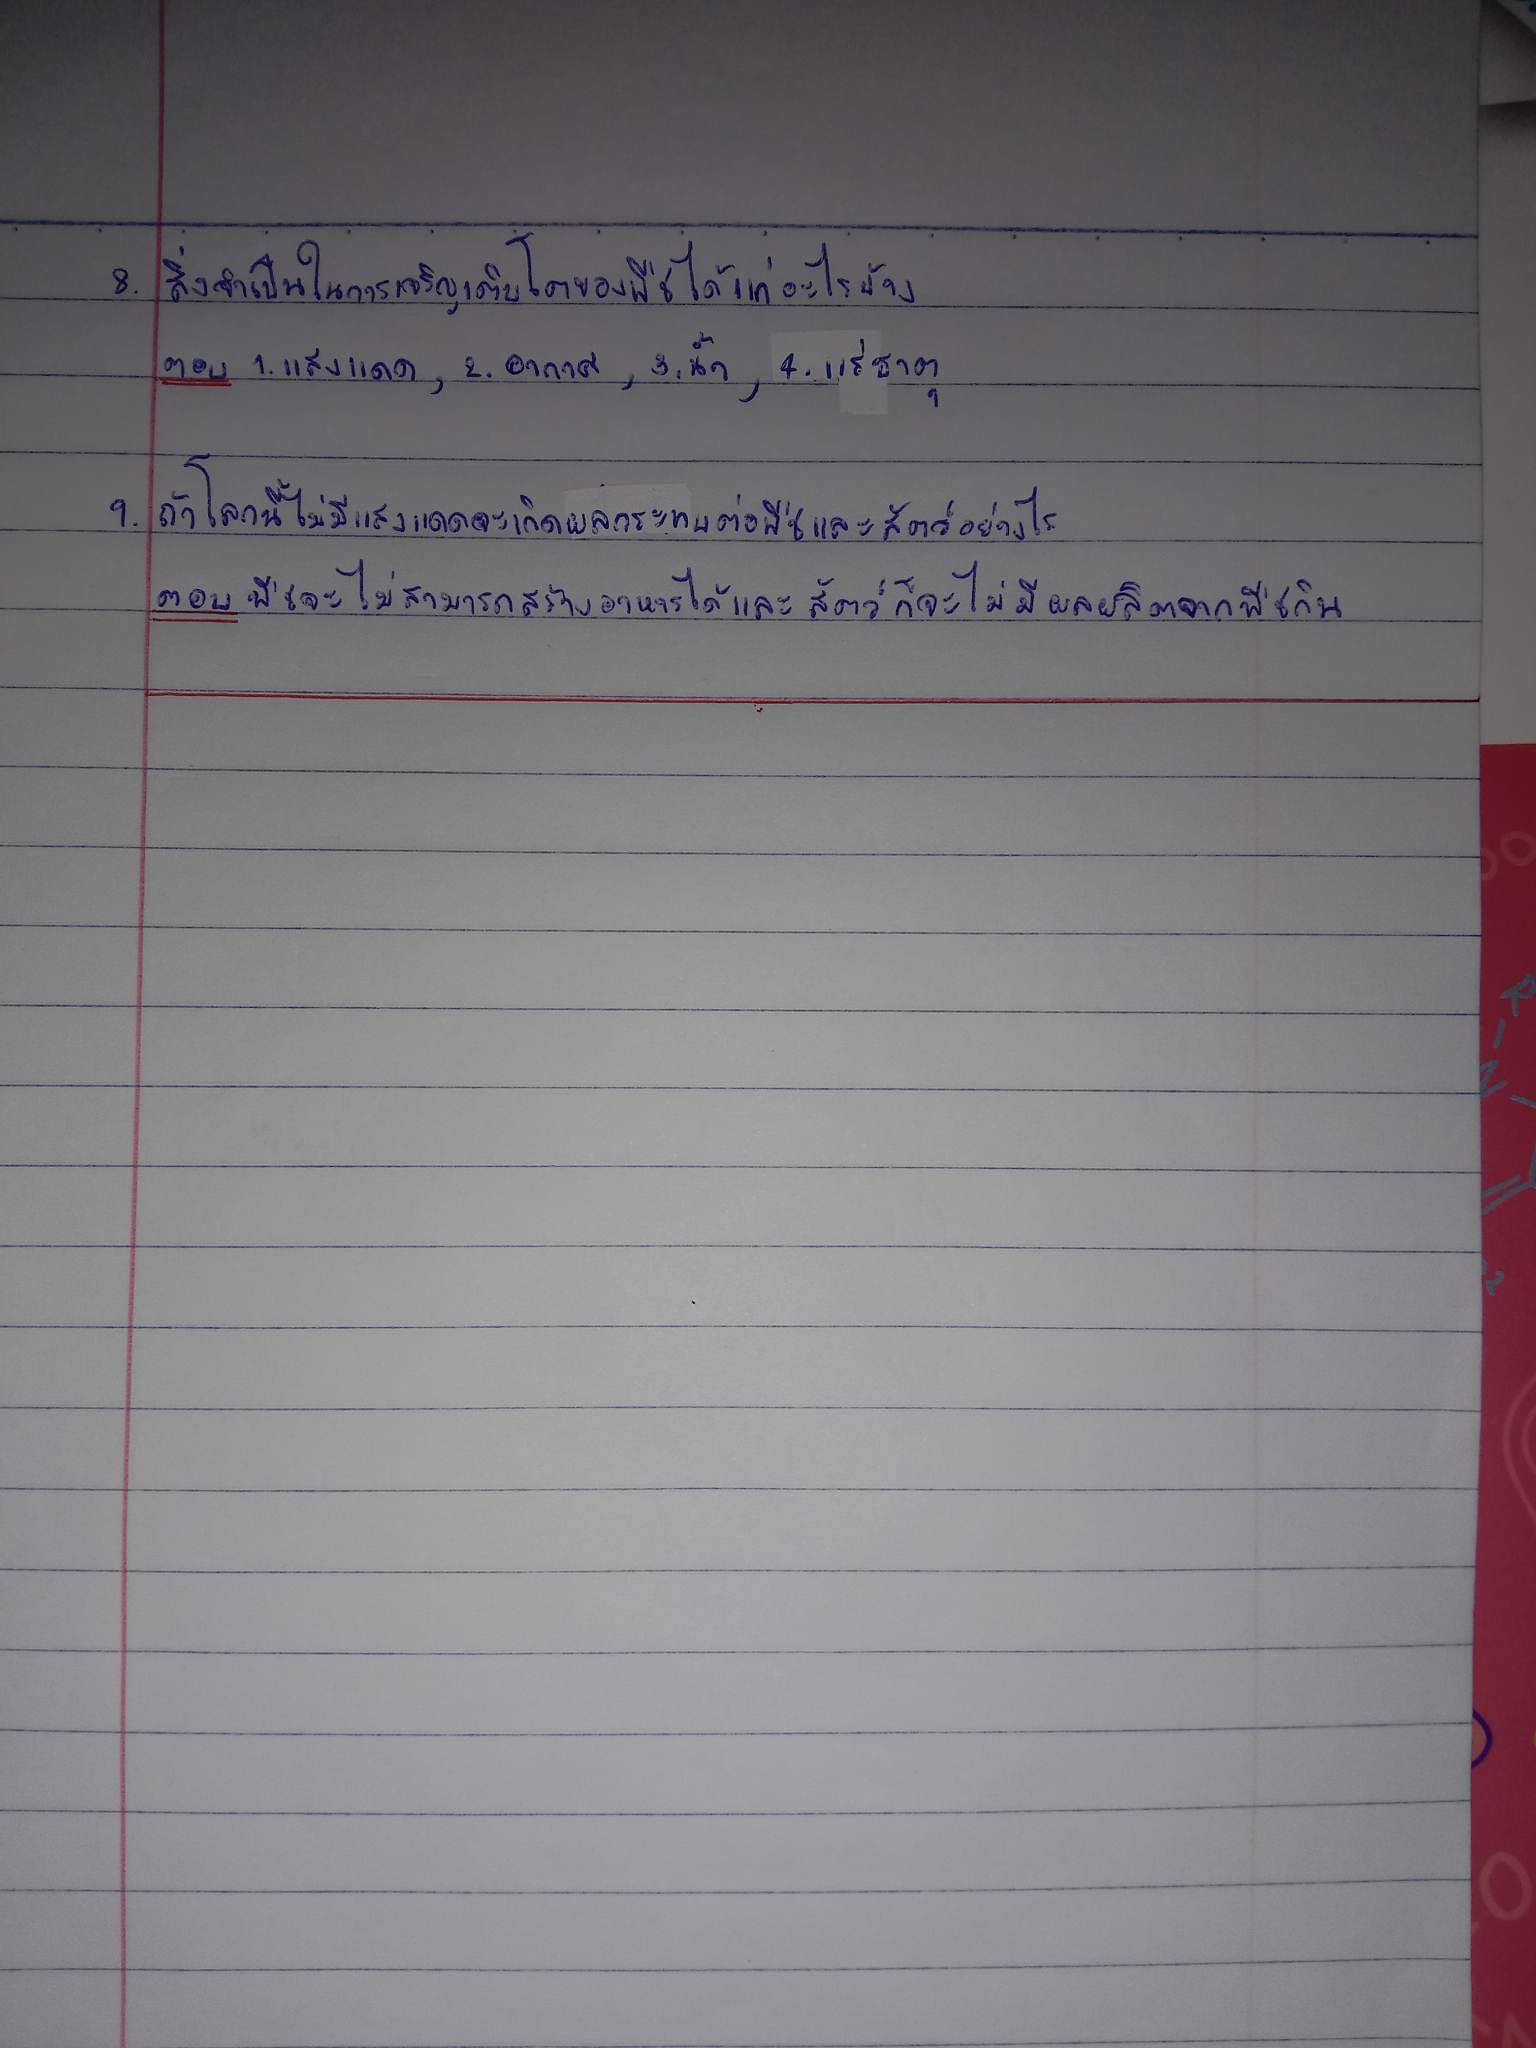 8. สิ่งจำเป็นในการเจริญเติบโตของพืชได้แก่อะไรบ้าง
ตอบ 1. แสงแดด, 2. อากาศ, 3. น้ำ, 4. แร่ธาตุ
9. ถ้าโลกนี้ไม่มีแสงแดดจะเกิดผลกระทบต่อพืชและสัตว์อย่างไร
ตอบ พืชจะไม่สามารถสร้างอาหารได้และสัตว์ก็จะไม่มีผลผลิตจากพืชกิน
R
N